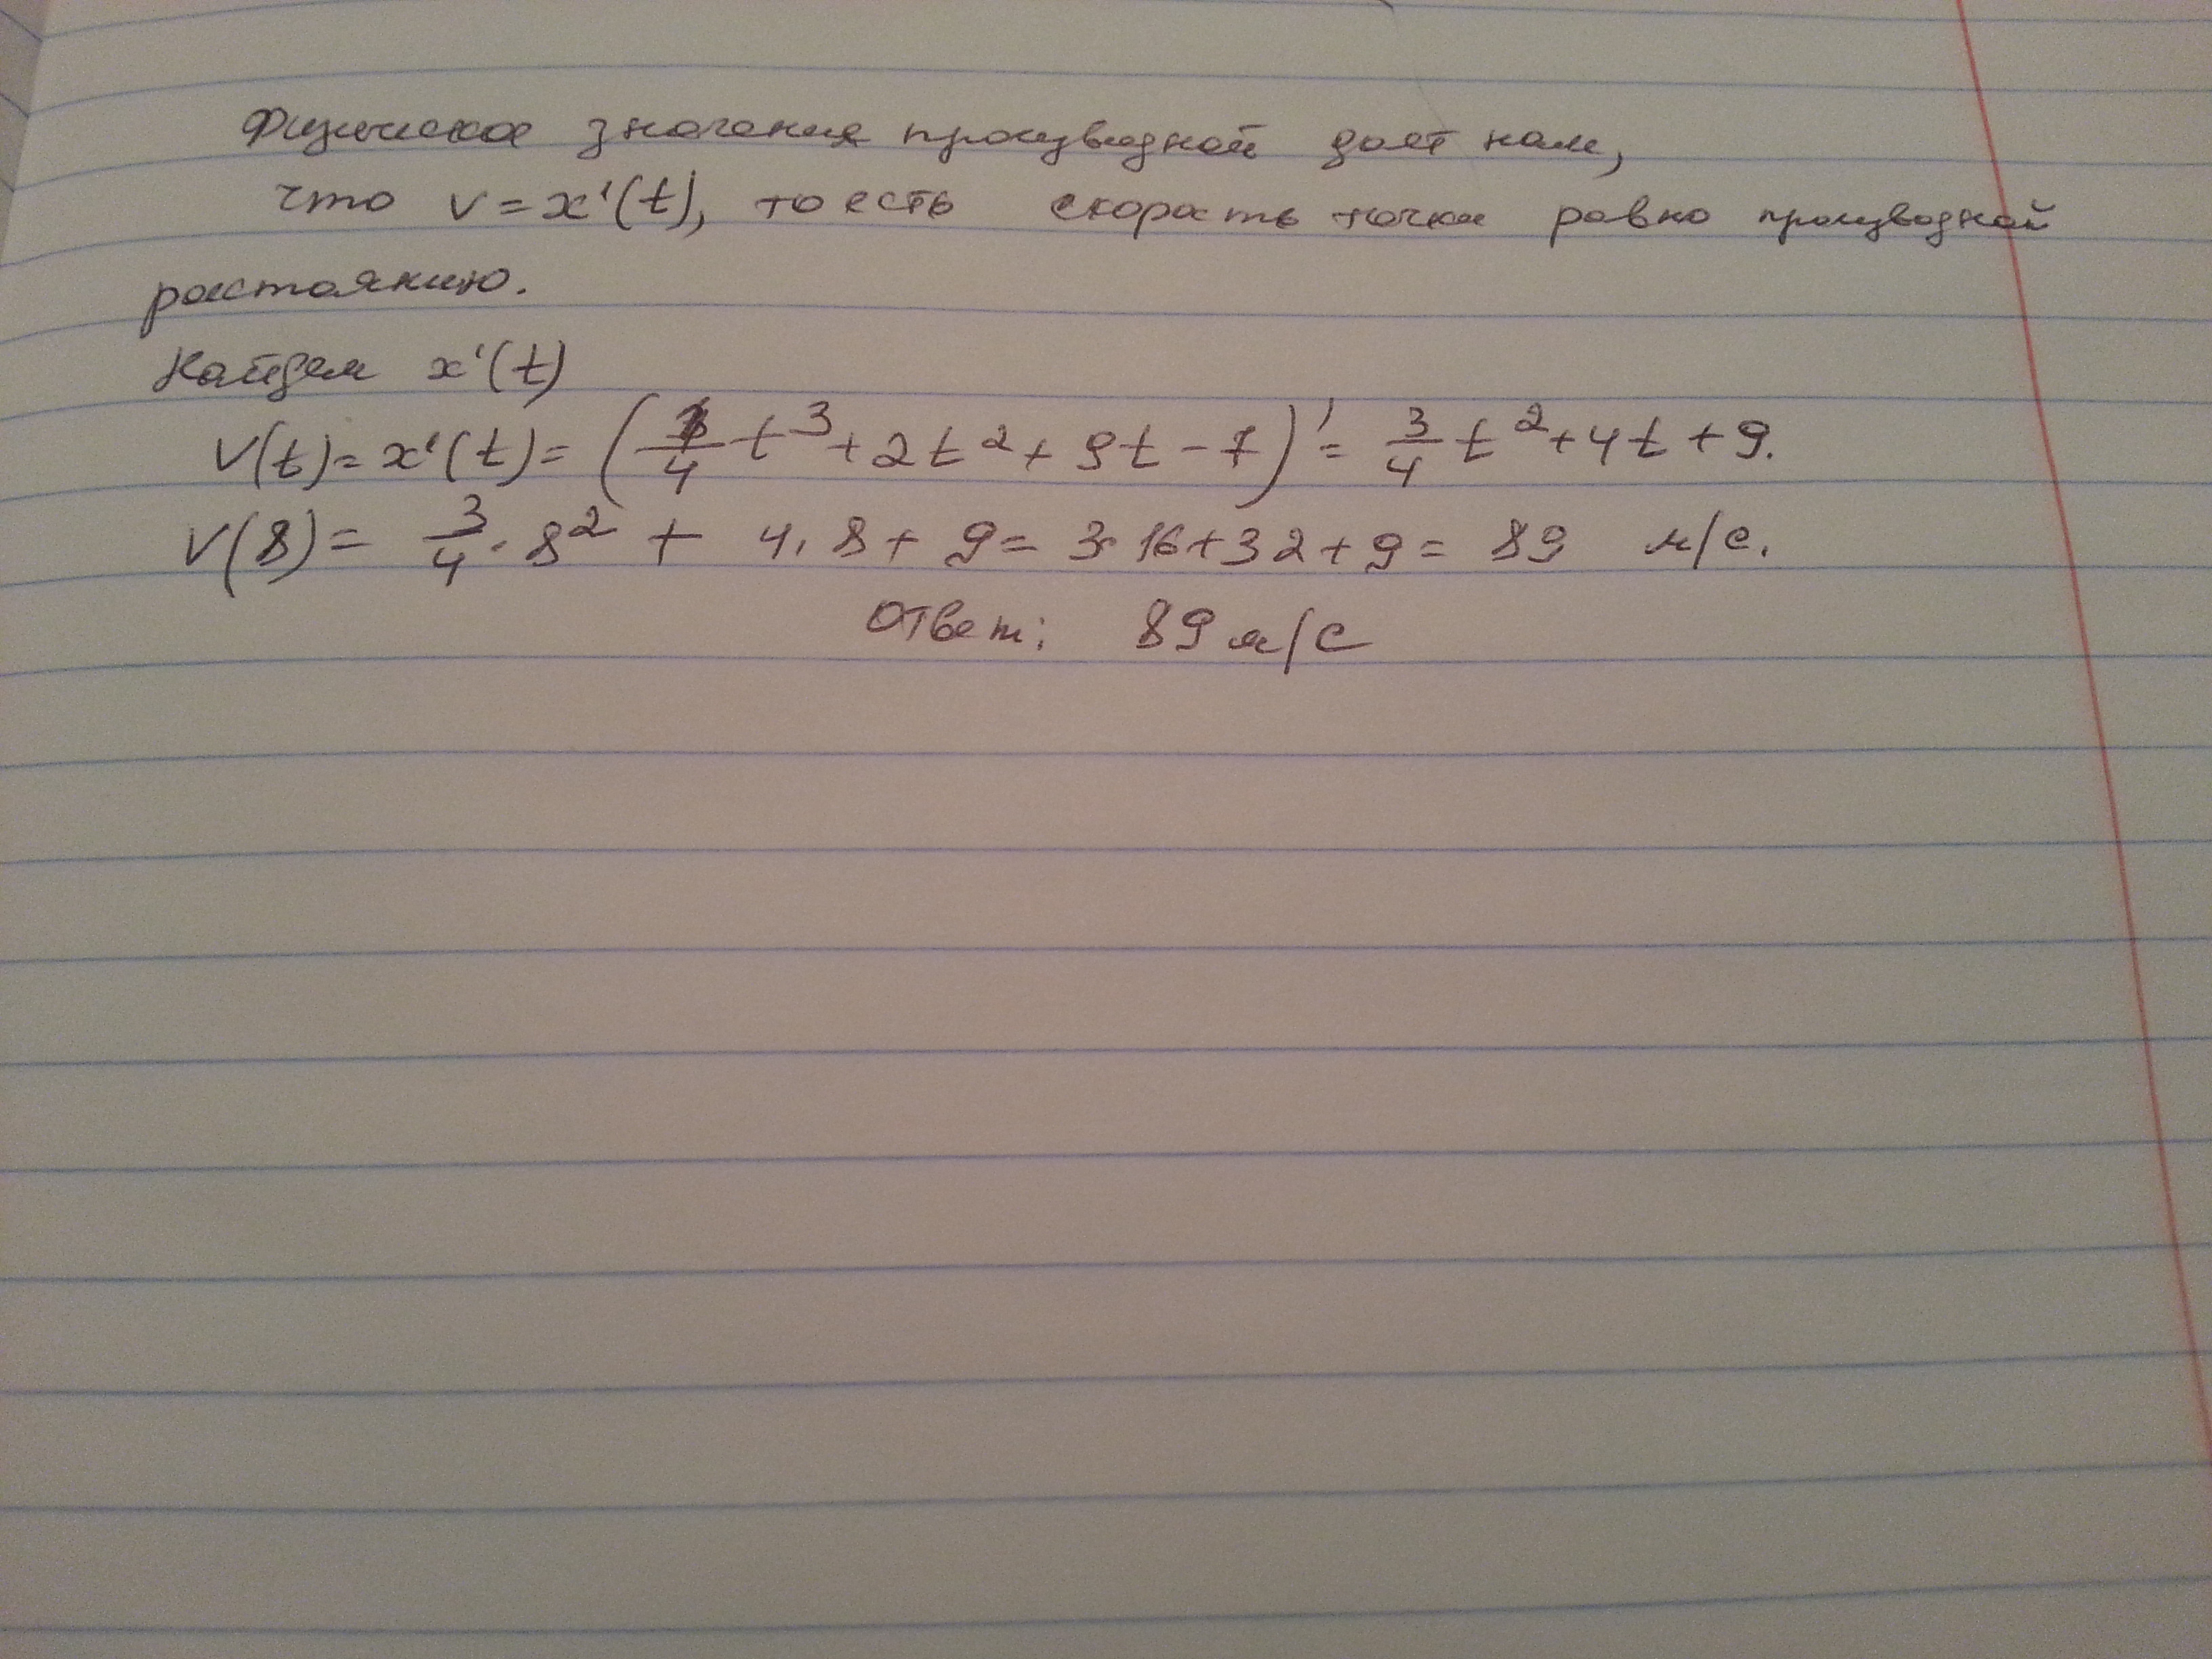 Физическое значения производной дает нам,
что v = x'(t), то есть скорость точки равно производной
растоянию.
Найдем x'(t)
V(t) = x'(t) = (1/4 t^3 + 2t^2 + 9t - 7)' = 3/4 t^2 + 4t + 9.
V(8) = 3/4 · 8^2 + 4 · 8 + 9 = 3 · 16 + 32 + 9 = 89 м/с.
Ответ: 89 м/с